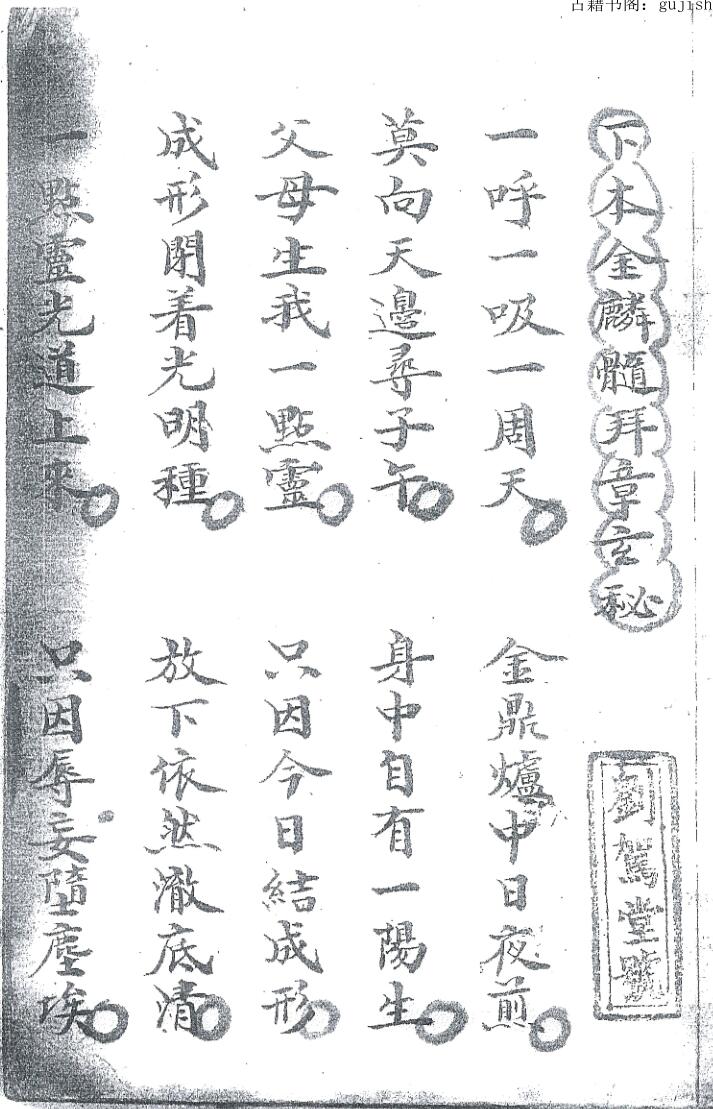 古籍书阁：gujish
下本金麟髓拜章玄秘
劉駕堂號
一呼一吸一周天 金鼎爐中日夜煎
莫向天邊尋子午 身中自有一陽生
父母生我一點靈 只因今日結成形
成形閉着光明種 放下依然澈底清
一點靈光道上來 只因辱妄墮塵埃